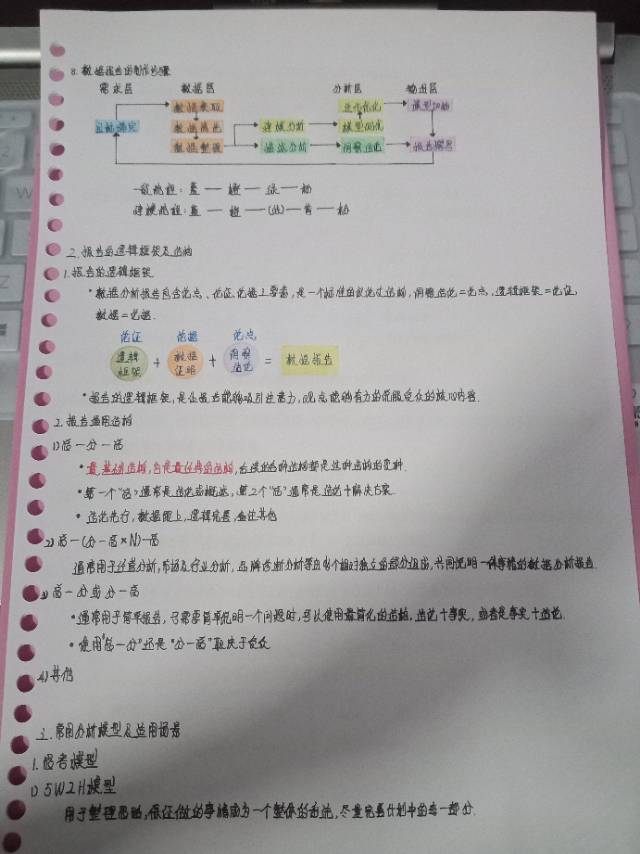 8. 数据报告的制作步骤
需求区 数据区 分析区 输出区
数据采取 迭代优化 模型归档
目标确定 数据清洗 建模分析 模型调优
数据整理 描述分析 洞察结论 报告撰写
二. 报告的逻辑框架及结构
1. 报告的逻辑框架
• 数据分析报告包含论点、论证、论据三要素, 是一个标准的议论文结构, 洞察结论=论点, 逻辑框架=论证,
数据=论据.
论证 论据 论点
逻辑框架 + 数据证据 + 洞察结论 = 数据报告
• 报告的逻辑框架, 是让报告能够吸引注意力, 的核心内容.
2. 报告通用结构
1) 总一分一总
• 最基础结构, 也是最经典的结构, 后续的各种结构都是这种结构的变种.
• 第一个“总”通常是结论或概述, 第2个“总”通常是结论+解决方案.
• 结论先行, 数据跟上, 逻辑完善,
2) 总一(分一总×N)一总
通常用于经营分析, 市场及行业分析, 品牌诊断分析等由多个相对独立的部分组成, 共同说明一件事情的数据分析报告.
3) 总一分或分一总
• 通常用于简单报告, 只需要简单说明一个问题时, 可以使用最简化的结构, 结论+事实, 或者是事实+结论.
• 使用“总一分”还是“分一总”取决于受众
4) 其他
三. 常用分析模型及适用场景
1. 思考模型
1) 5W2H模型
用于整理思路, 保证做的事情成为一个整体的方法, 尽量完善计划中的每一部分.